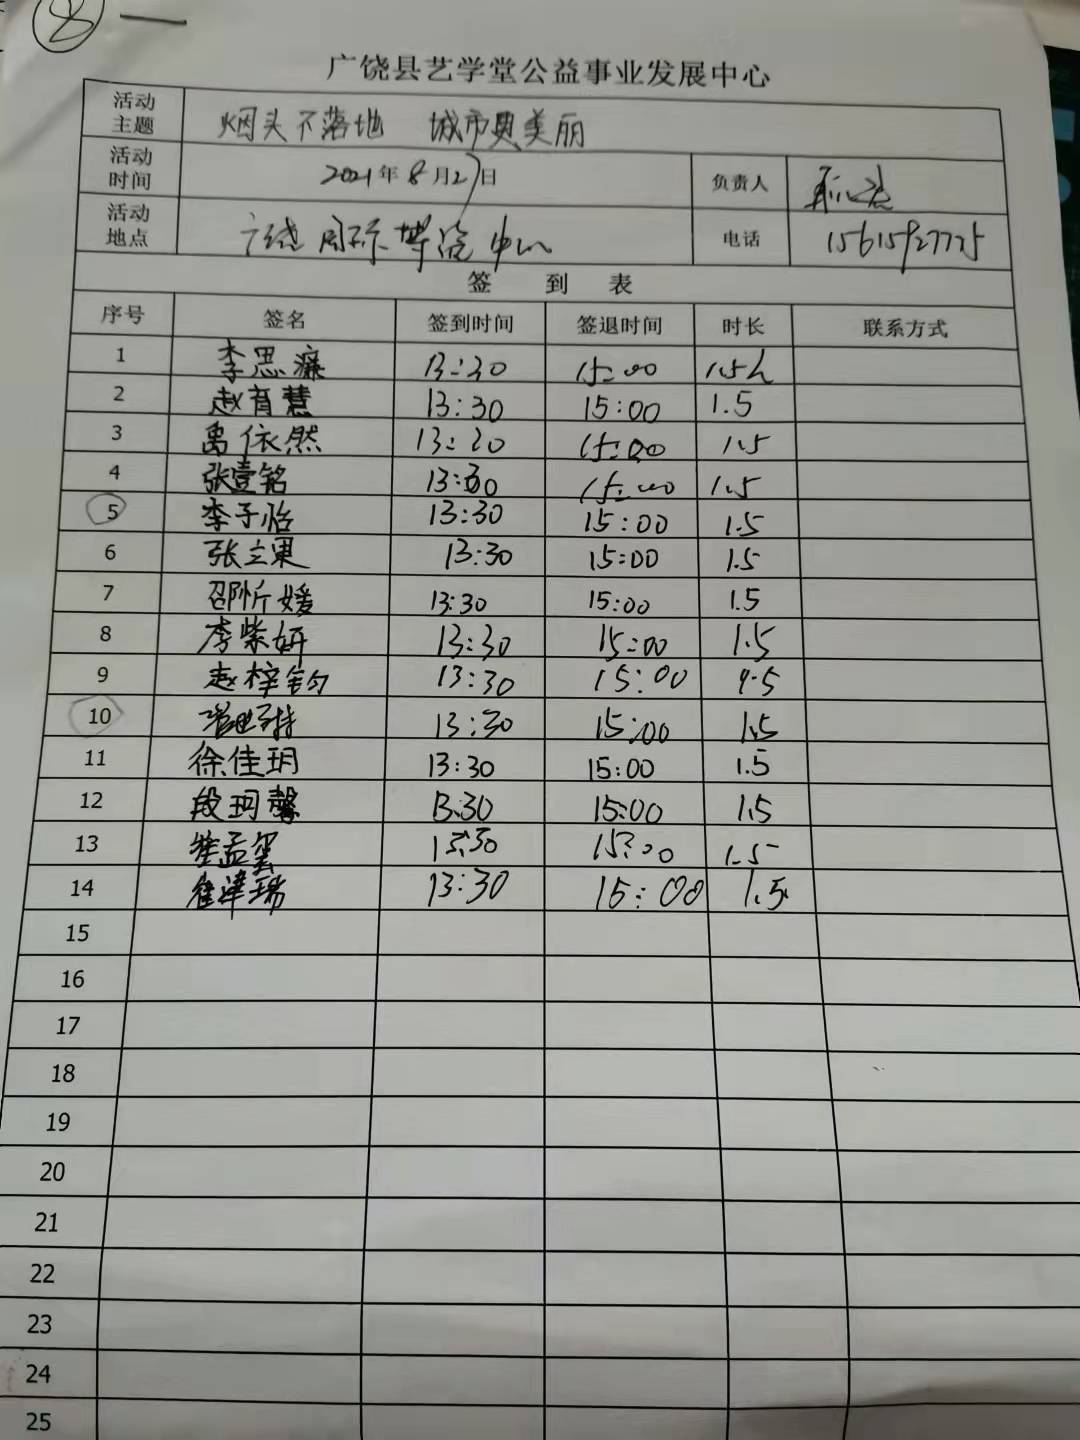 8
广饶县艺学堂公益事业发展中心
活动主题 烟头不落地 城市更美丽
活动时间 2021年8月27日 负责人
活动地点 广饶国际博览中心 电话 15615927725
签 到 表
序号 签名 签到时间 签退时间 时长 联系方式
1 李思濂 13:30 15:00 1.5h
2 赵育慧 13:30 15:00 1.5
3 禹依然 13:30 15:00 1.5
4 张壹铭 13:30 15:00 1.5
5 李子怡 13:30 15:00 1.5
6 张立果 13:30 15:00 1.5
7 邵忻媛 13:30 15:00 1.5
8 李紫妍 13:30 15:00 1.5
9 赵梓钧 13:30 15:00 1.5
10 13:30 15:00 1.5
11 徐佳玥 13:30 15:00 1.5
12 段珂馨 13:30 15:00 1.5
13 13:30 15:00 1.5
14 13:30 15:00 1.5
15
16
17
18
19
20
21
22
23
24
25